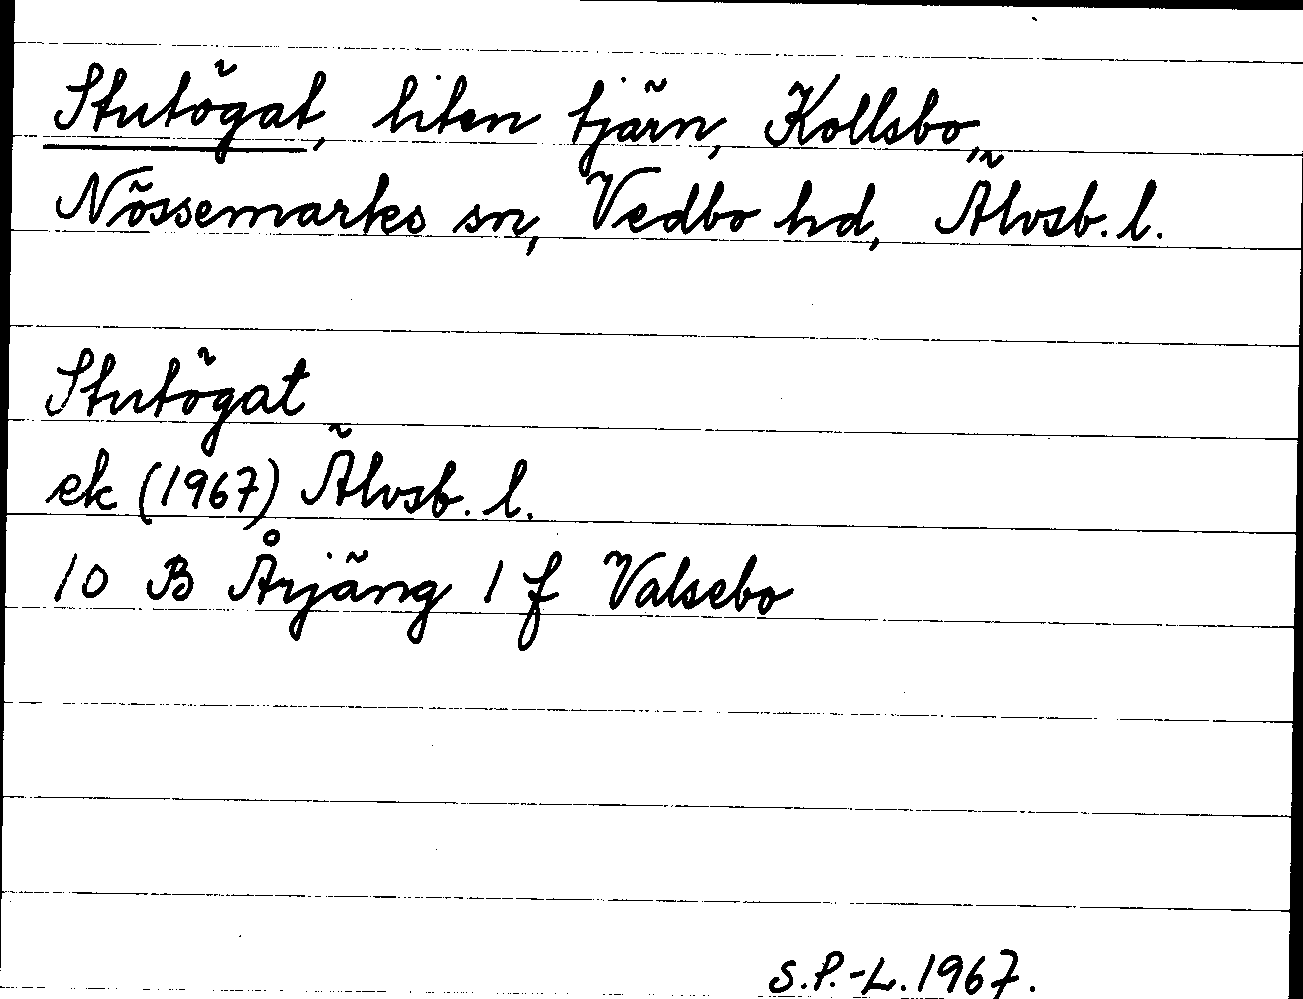 Stutögat, liten tjärn, Kollsbo,
Nössemarks sn, Vedbo hd, Älvsb. l.
Stutögat
ek (1967) Älvsb. l.
10 B Årjäng 1 f Valsebo
S.P.-L. 1967.